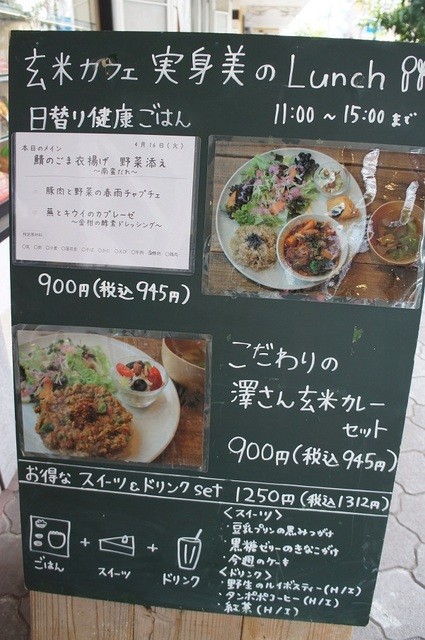 玄米カフェ 実身美の Lunch
日替り健康ごはん
11:00 ~ 15:00 まで
本日のメイン 4月16日(火)
鯖のごま衣揚げ 野菜添え
~南蛮だれ~
豚肉と野菜の春雨チャプチェ
蕪とキウイのカプレーゼ
~金柑の酵素ドレッシング~
900円(税込945円)
こだわりの
澤さん玄米カレー
セット
900円(税込945円)
お得な スイーツ&ドリンク set 1250円(税込1312円)
ごはん + スイーツ + ドリンク
<スイーツ>
・豆乳プリンの黒みつがけ
・黒糖ゼリーのきなこがけ
・今週のケーキ
<ドリンク>
・野生のルイボスティー(H/I)
・タンポポコーヒー(H/I)
・紅茶(H/I)